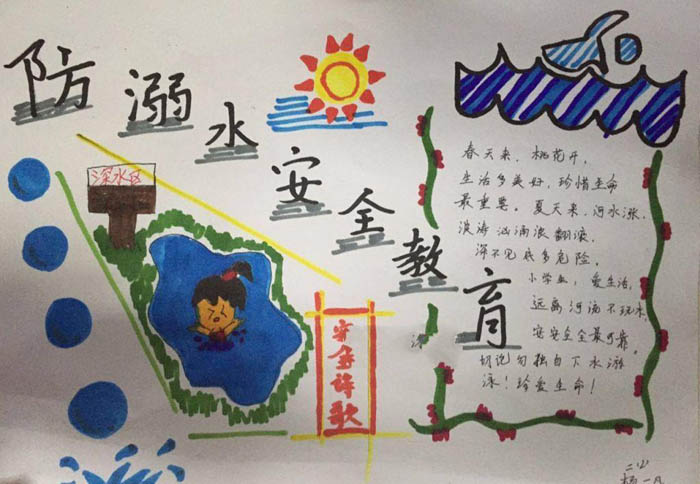 防溺水安全教育
深水区
安全诗歌
春天来，桃花开，
生活多美好，珍惜生命
最重要。夏天来，河水涨，
波涛汹涌浪翻滚，
深不见底多危险。
小学生，爱生活，
远离河汤不玩水，
安安全全最可靠。
切记勿独自下水游
泳！珍爱生命！
二
杨一凡